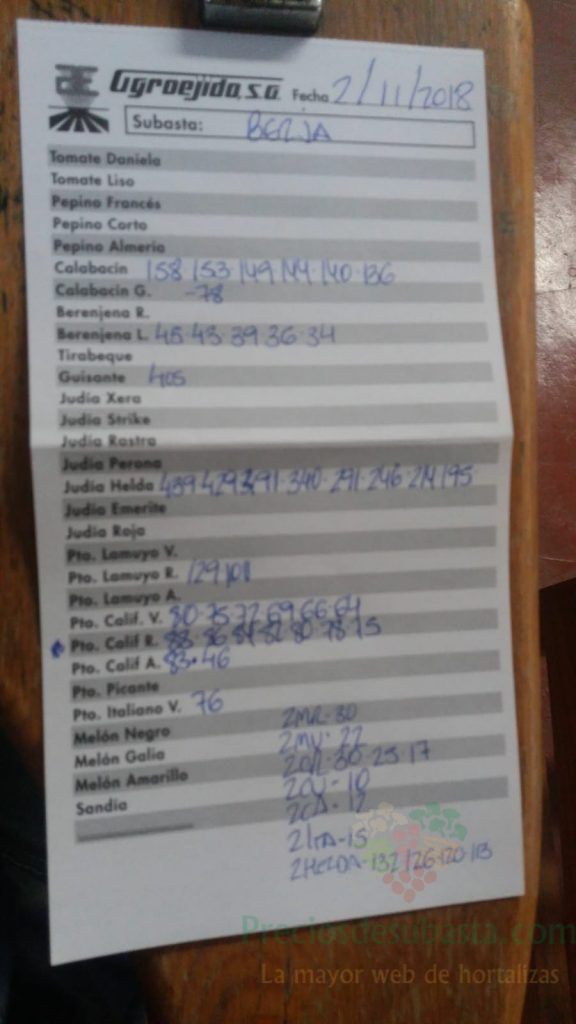 Agroejido, s.a. Fecha 2/11/2018
Subasta: BERJA
Tomate Daniela
Tomate Liso
Pepino Francés
Pepino Corto
Pepino Almeria
Calabacín 158 153 149 144 · 140 · 136
Calabacín G. -78
Berenjena R.
Berenjena L. 45 · 43 · 39 · 36 · 34
Tirabeque
Guisante 405
Judía Xera
Judía Strike
Judía Rastra
Judía Perona
Judía Helda 439 429 391 · 340 · 291 · 246 · 214 195
Judía Emerite
Judía Roja
Pto. Lamuyo V.
Pto. Lamuyo R. 129 101
Pto. Lamuyo A.
Pto. Calif. V. 80 · 75 · 72 · 69 · 66 · 64
Pto. Calif R. 88 · 86 84 82 80 · 78 · 75
Pto. Calif A. 83 · 46
Pto. Picante
Pto. Italiano V. 76
Melón Negro 2MR · 30
Melón Galia 2MV · 22
Melón Amarillo 30 · 25 · 17
Sandía 10
2CA · 12
15
2HELDA · 132 126 · 120 · 113
Preciosdesubasta.com
La mayor web de hortalizas